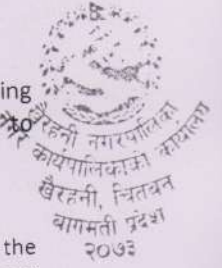 ing
to
खैरहनी नगरपालिका
कार्यपालिकाको कार्यालय
खैरहनी, चितवन
बागमती प्रदेश
the
२०७३